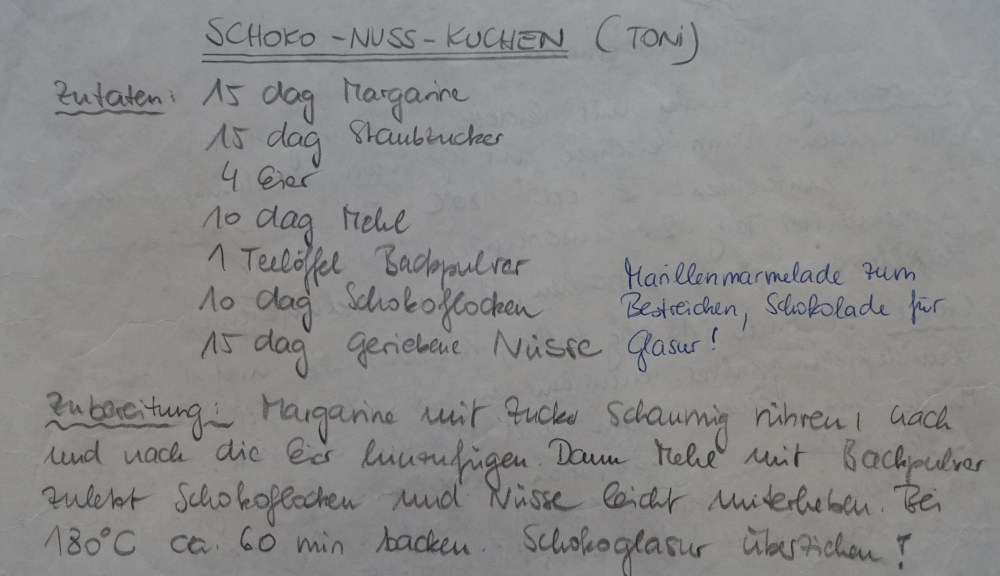 SCHOKO-NUSS-KUCHEN (TONI)
Zutaten: 15 dag Margarine
15 dag Staubzucker
4 Eier
10 dag Mehl
1 Teelöffel Backpulver
10 dag Schokoflocken
15 dag geriebene Nüsse
Marillenmarmelade zum
Bestreichen, Schokolade für
Glasur!
Zubereitung: Margarine mit Zucker schaumig rühren, nach
und nach die Eier hinzufügen. Dann Mehl mit Backpulver
zuletzt Schokoflocken und Nüsse leicht unterheben. Bei
180°C ca. 60 min backen. Schokoglasur überziehen!